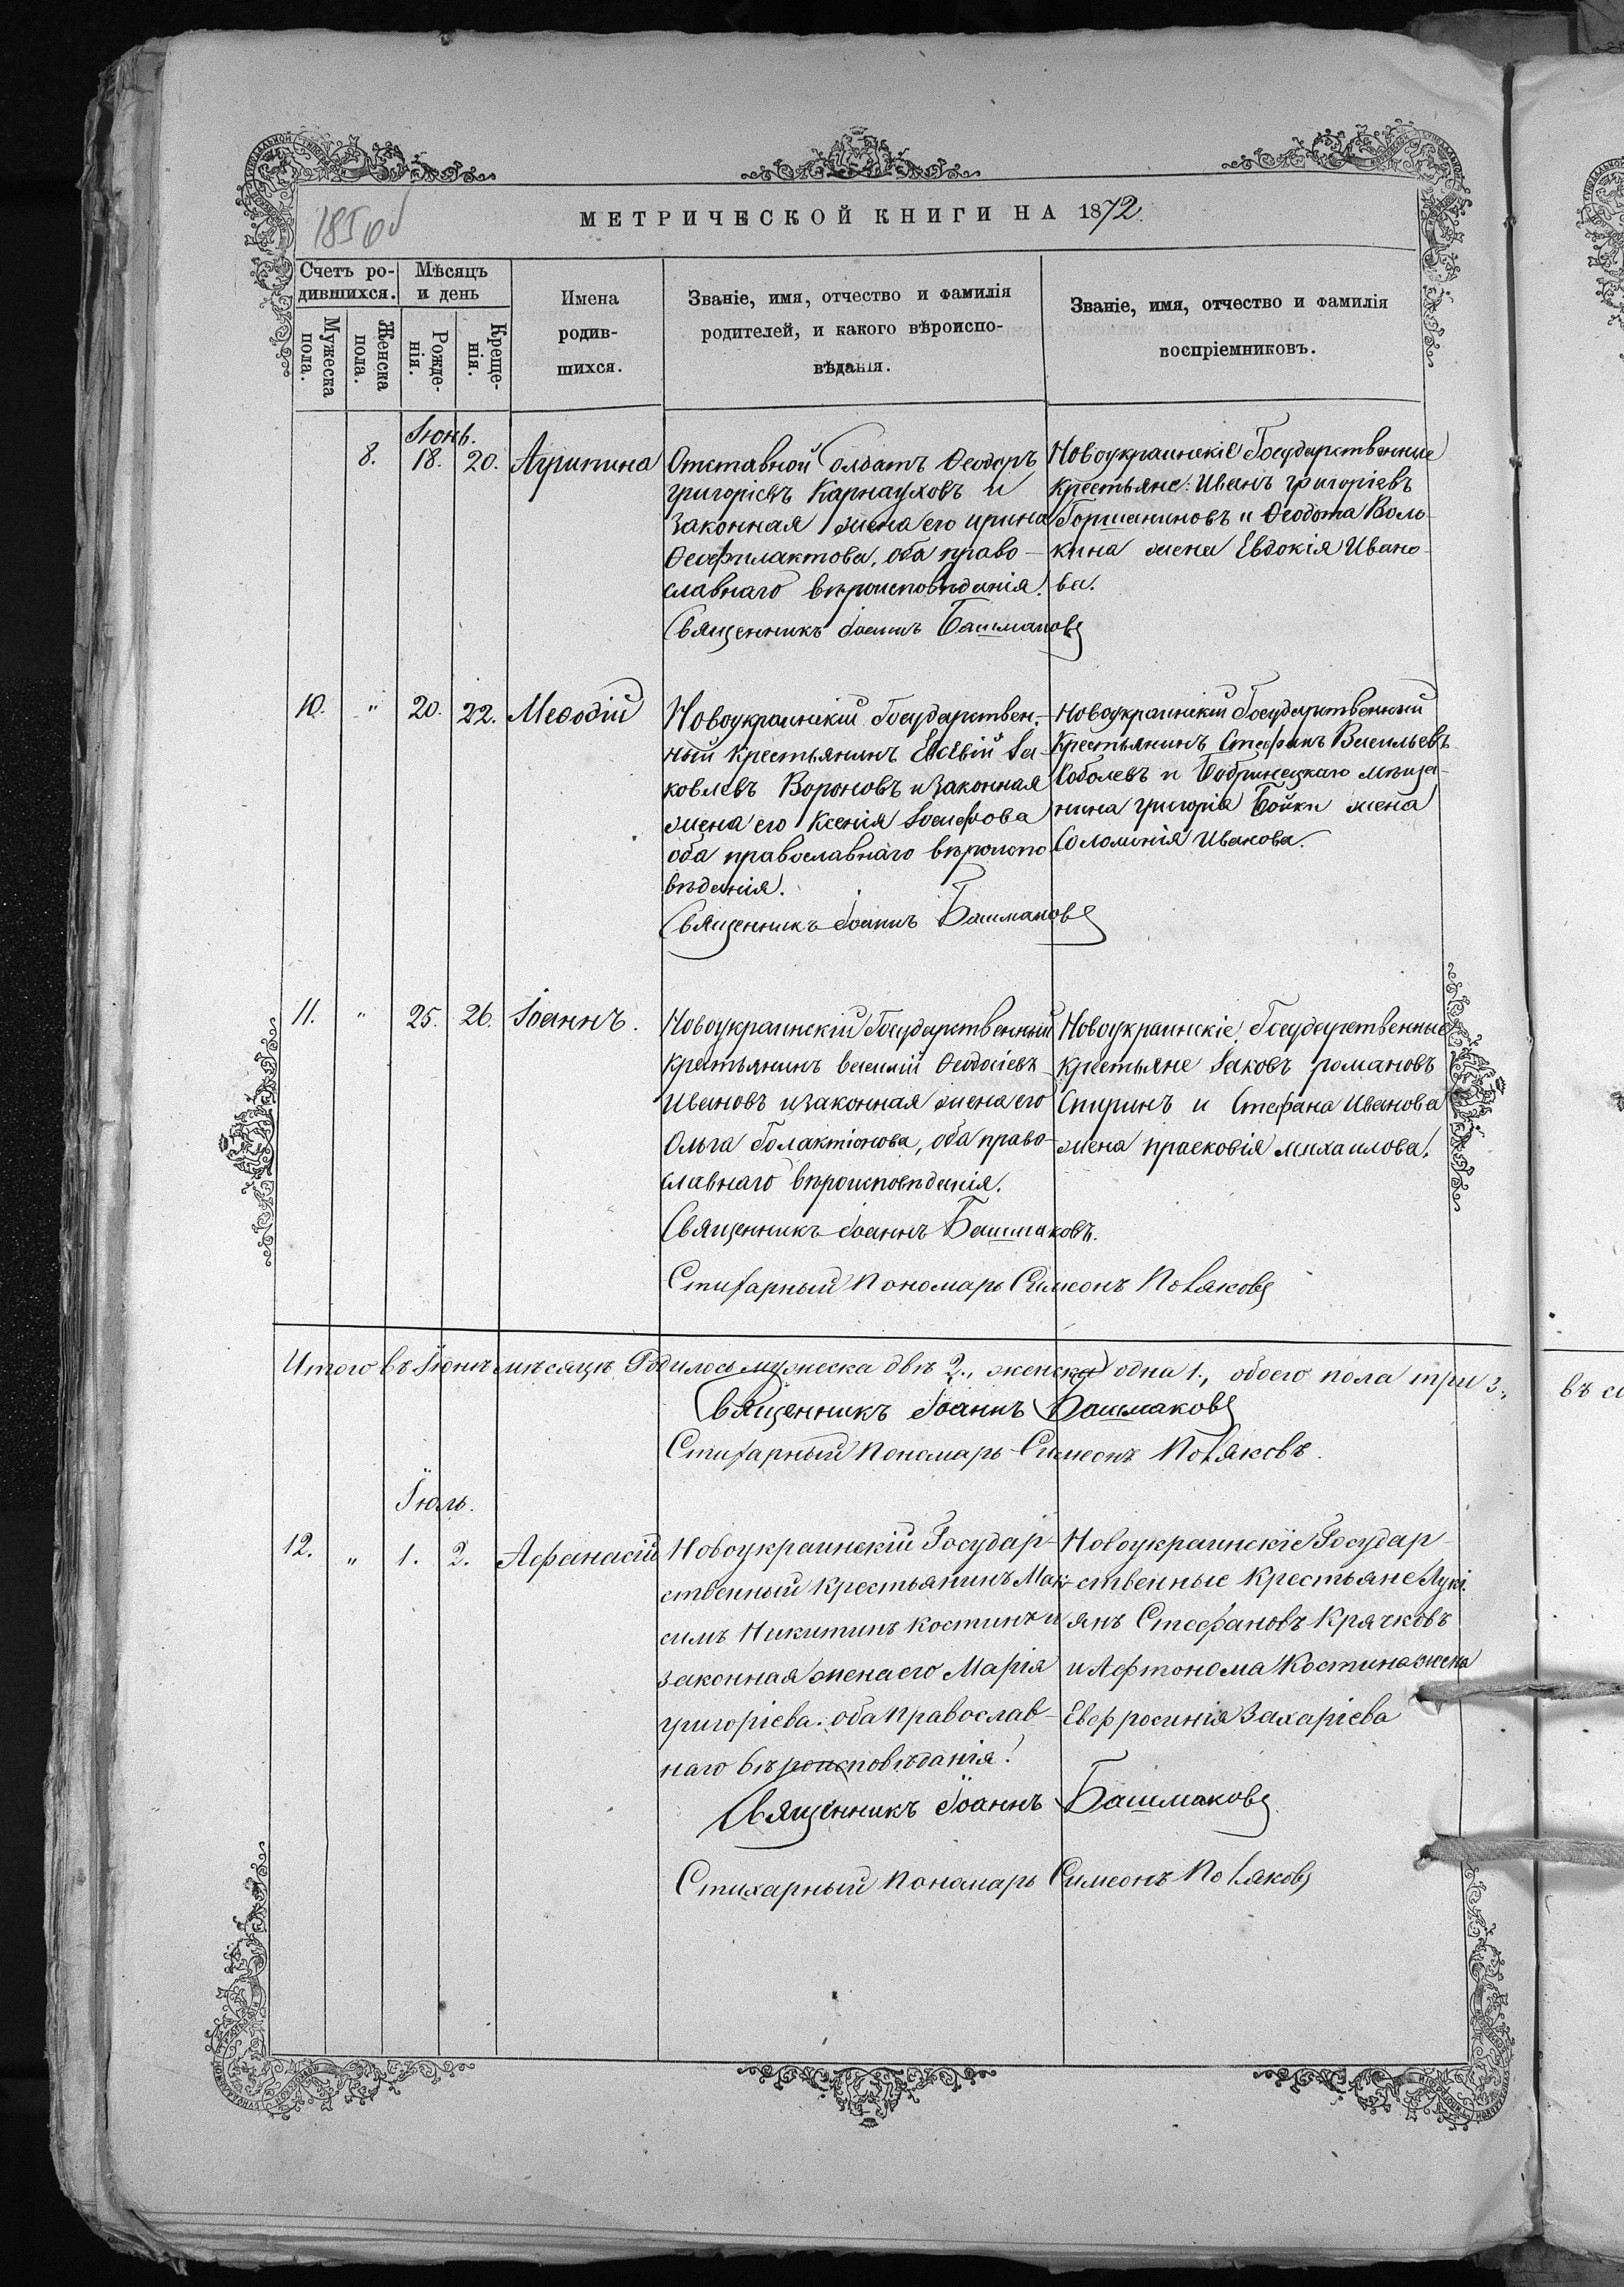 185 об
МЕТРИЧЕСКОЙ КНИГИ НА 1872.
Счетъ ро-
дившихся.
Мѣсяцъ
и день
Мужеска
пола.
Женска
пола.
Рожде-
нія.
Креще-
нія.
Имена
родив-
шихся.
Званіе, имя, отчество и фамилія
родителей, и какого вѣроиспо-
вѣданія.
Званіе, имя, отчество и фамилія
воспріемниковъ.
Іюнь.
8. 18. 20. Агрипина
Отставной Солдатъ Ѳеодоръ
григоріевъ Карнауховъ и
законная жена его ирина
Ѳеофилактова, оба право-
славнаго вѣроисповѣданія.
Священникъ Іоаннъ Башмаковъ
Новоукраинскіе Государственные
Крестьяне: Иванъ григоріевъ
Горшениновъ и Ѳеодота Воло-
кина жена Евдокія Ивано-
ва.
10. " 20. 22. Меѳодій
Новоукраинскій Государствен-
ный крестьянинъ Евсевій Іа-
ковлевъ Вороновъ и законная
жена его Ксенія Іосифова
оба православнаго вѣроиспо
вѣданія.
Священникъ Іоаннъ Башмаковъ
Новоукраинскій Государственный
Крестьянинъ Стефанъ Васильевъ
Соболевъ и Бобринецкаго мѣща-
нина григорія Бойки жена
Соломонія Иванова.
11. " 25. 26. Іоаннъ.
Новоукраинскій Государственный
крестьянинъ василій Ѳеодосіевъ
Ивановъ и законная жена его
Ольга Галактіонова, оба право-
славнаго вѣроисповѣданія.
Священникъ Іоаннъ Башмаковъ.
Стихарный Пономарь Симеонъ Поляковъ
Новоукраинскіе Государственные
Крестьяне Іаковъ романовъ
Спиринъ и Стефана Иванова
жена праековія михаилова.
Итого въ Іюнѣ мѣсяцѣ Родилось мужеска двѣ 2., женска одна 1., обоего пола три 3.,
Священникъ Іоаннъ Башмаковъ
Стихарный Пономарь Симеонъ Поляковъ.
Іюль.
12. " 1. 2. Афанасій
Новоукраинскій Государ-
ственный Крестьянинъ Мак-
симъ Никитинъ Костинъ и
законная жена его Марія
григоріева. оба Православ-
наго вѣроисповѣданія.
Священникъ Іоаннъ Башмаковъ
Стихарный Пономарь Симеонъ Поляковъ
Новоукраинскіе Государ-
ственные Крестьяне Лукі
янъ Стефановъ Крячковъ
и Афтонома Костина жена
Евфросинія Захаріева
въ